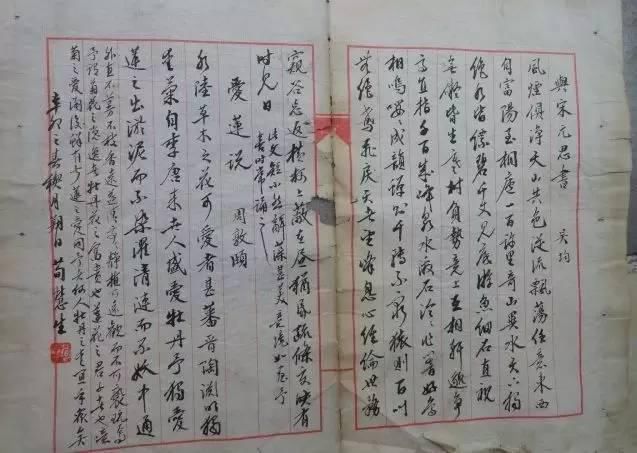 與宋元思書 吳均
風煙俱淨天山共色從流飄蕩任意東西
自富陽至桐廬一百許里奇山異水天下獨
絕水皆縹碧千丈見底游魚細石直視
無礙皆生寒樹負勢競上互相軒邈爭
高直指千百成峰泉水激石泠泠作響好鳥
相鳴嚶嚶成韻蟬則千囀不窮猿則百叫
無絕鳶飛戾天者望峰息心經綸世務
窺谷忘返橫柯上蔽在晝猶昏疏條交映有
時見日
此文短小然辭藻甚美
喜時常誦之
愛蓮說 周敦頤
水陸草木之花可愛者甚蕃晉陶淵明獨
愛菊自李唐來世人盛愛牡丹予獨愛
蓮之出淤泥而不染濯清漣而不妖中通
外直不蔓不枝香遠益清亭亭靜植可遠觀而不可褻玩焉
予謂菊花之隱逸者也牡丹花之富貴者也蓮花之君子者也噫
菊之愛陶後鮮有聞蓮之愛同予者何人牡丹之愛宜乎眾矣
辛卯之春月朔日 荀慧生